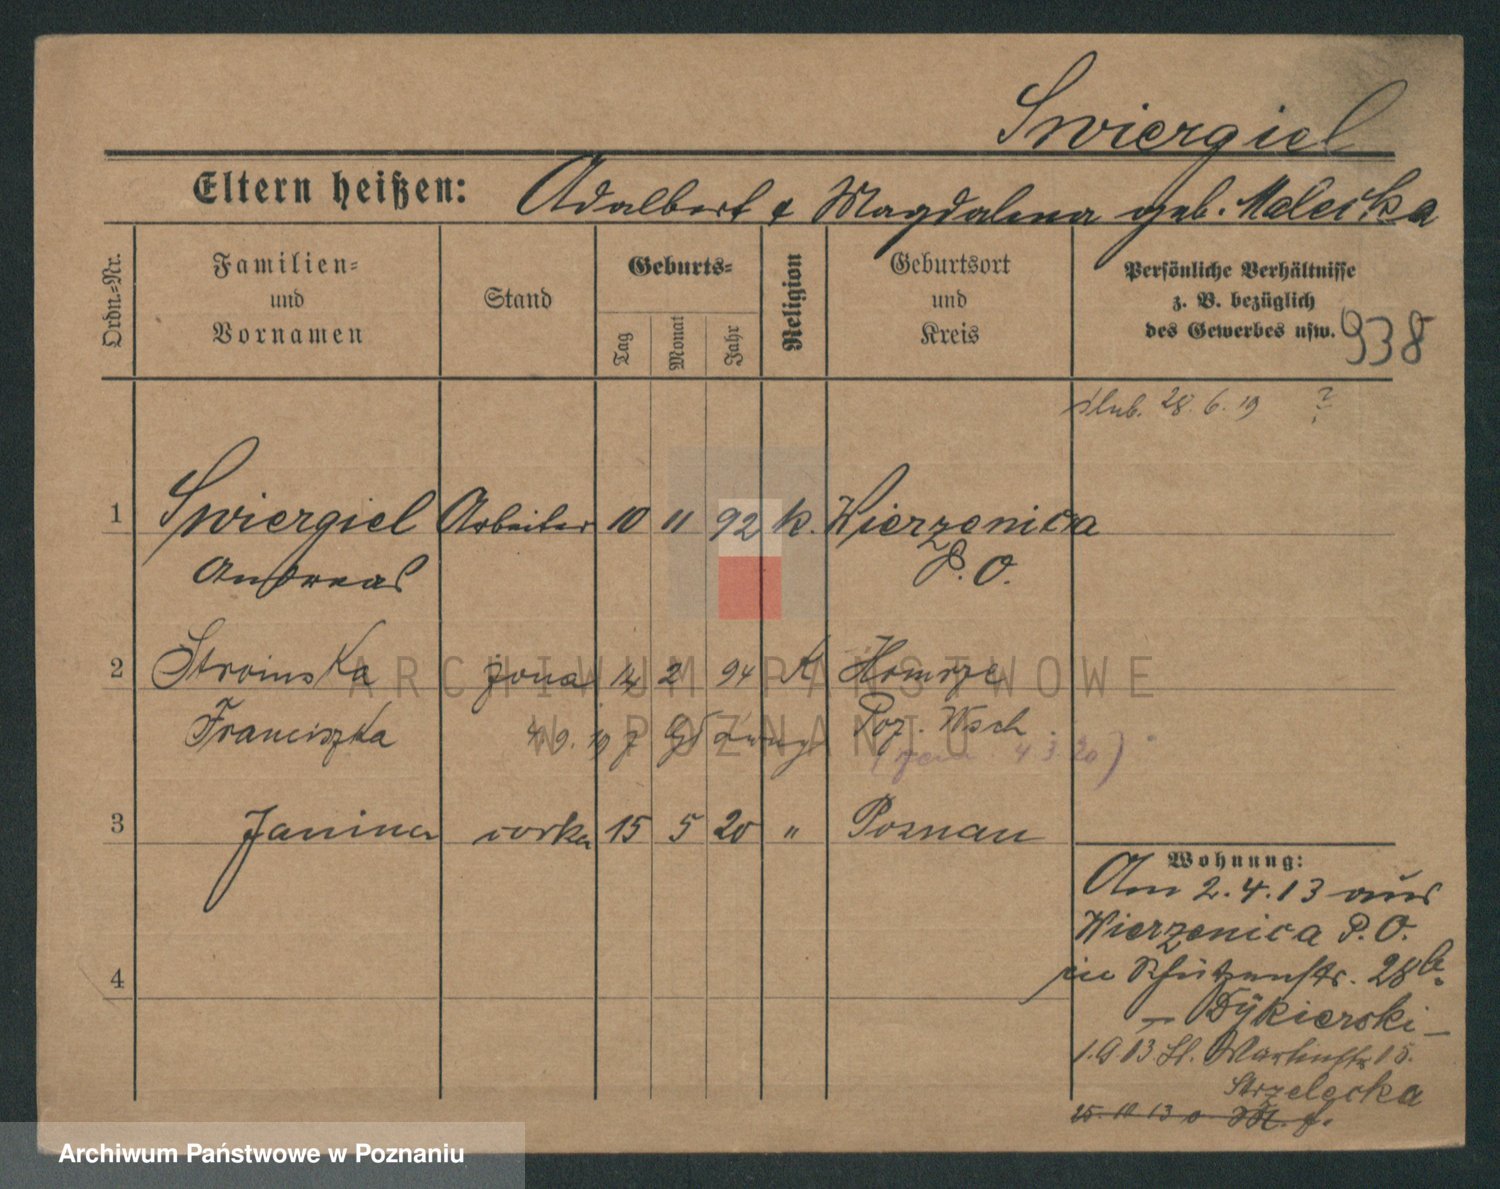 Swiergiel
Eltern heißen: Adalbert & Magdalena geb. Malecka
Ordn.-Nr.
Familien-
und
Vornamen
Stand
Geburts-
Tag
Monat
Jahr
Religion
Geburtsort
und
Kreis
Persönliche Verhältnisse
z. B. bezüglich
des Gewerbes usw.
938
ślub. 28. 6. 19 ?
1 Swiergiel Arbeiter 10 11 92 k. Wierzenica
Andreas P. O.
2 Stroinska żona 14 2 94 K
Franciszka 4.9. 19 Poz. Wsch
4 3 20)
3 Janina corka 15 5 20 " Poznan
4
Wohnung:
Am 2. 4. 13 aus
Wierzenica P. O.
in Schützenstr. 28b.
– Dykierski –
13 St. Martinstr 15.
Strzelecka
ARCHIWUM PAŃSTWOWE
W POZNANIU
Archiwum Państwowe w Poznaniu